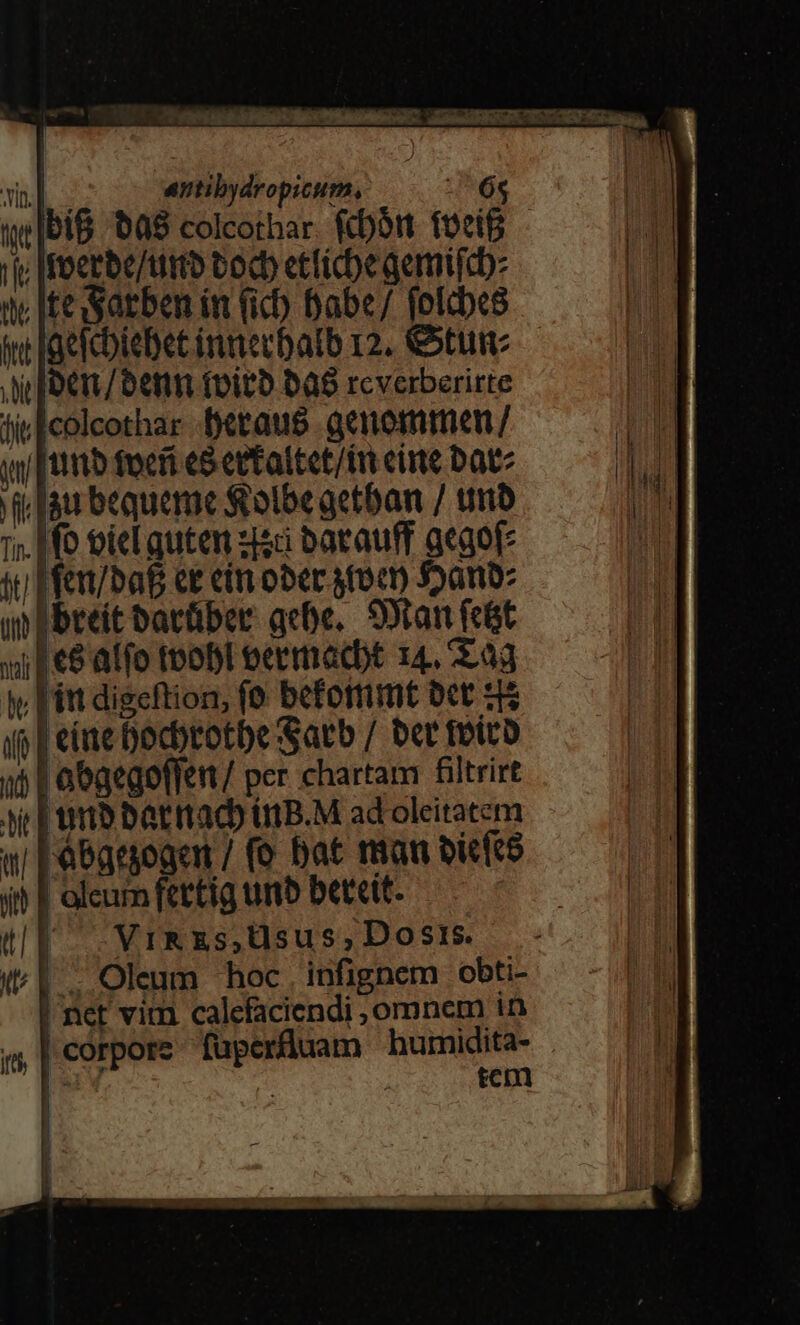 antihydropicum. 65
biß das colcothar schön weiß
werde/und doch etliche gemisch-
te Farben in sich habe/ solches
geschiehet innerhalb 12. Stun-
den/denn wird das reverberirte
colcothar heraus genommen/
und weñ es erkaltet/in eine dar-
zu bequeme Kolbe gethan / und
so viel guten darauff gegos-
sen/daß er ein oder zwey Hand-
breit darüber gehe. Man setzt
es also wohl vermacht 14. Tag
in digestion, so bekommt der
eine hochrothe Farb / der wird
abgegossen/ per chartam filtrirt
und darnach in B.M ad oleitatem
abgezogen / so hat man dieses
oleum fertig und bereit.
VIRES, Usus, DOSIS.
Oleum hoc insignem obti-
net vim calefaciendi, omnem in
corpore superfluam humidita-
tem